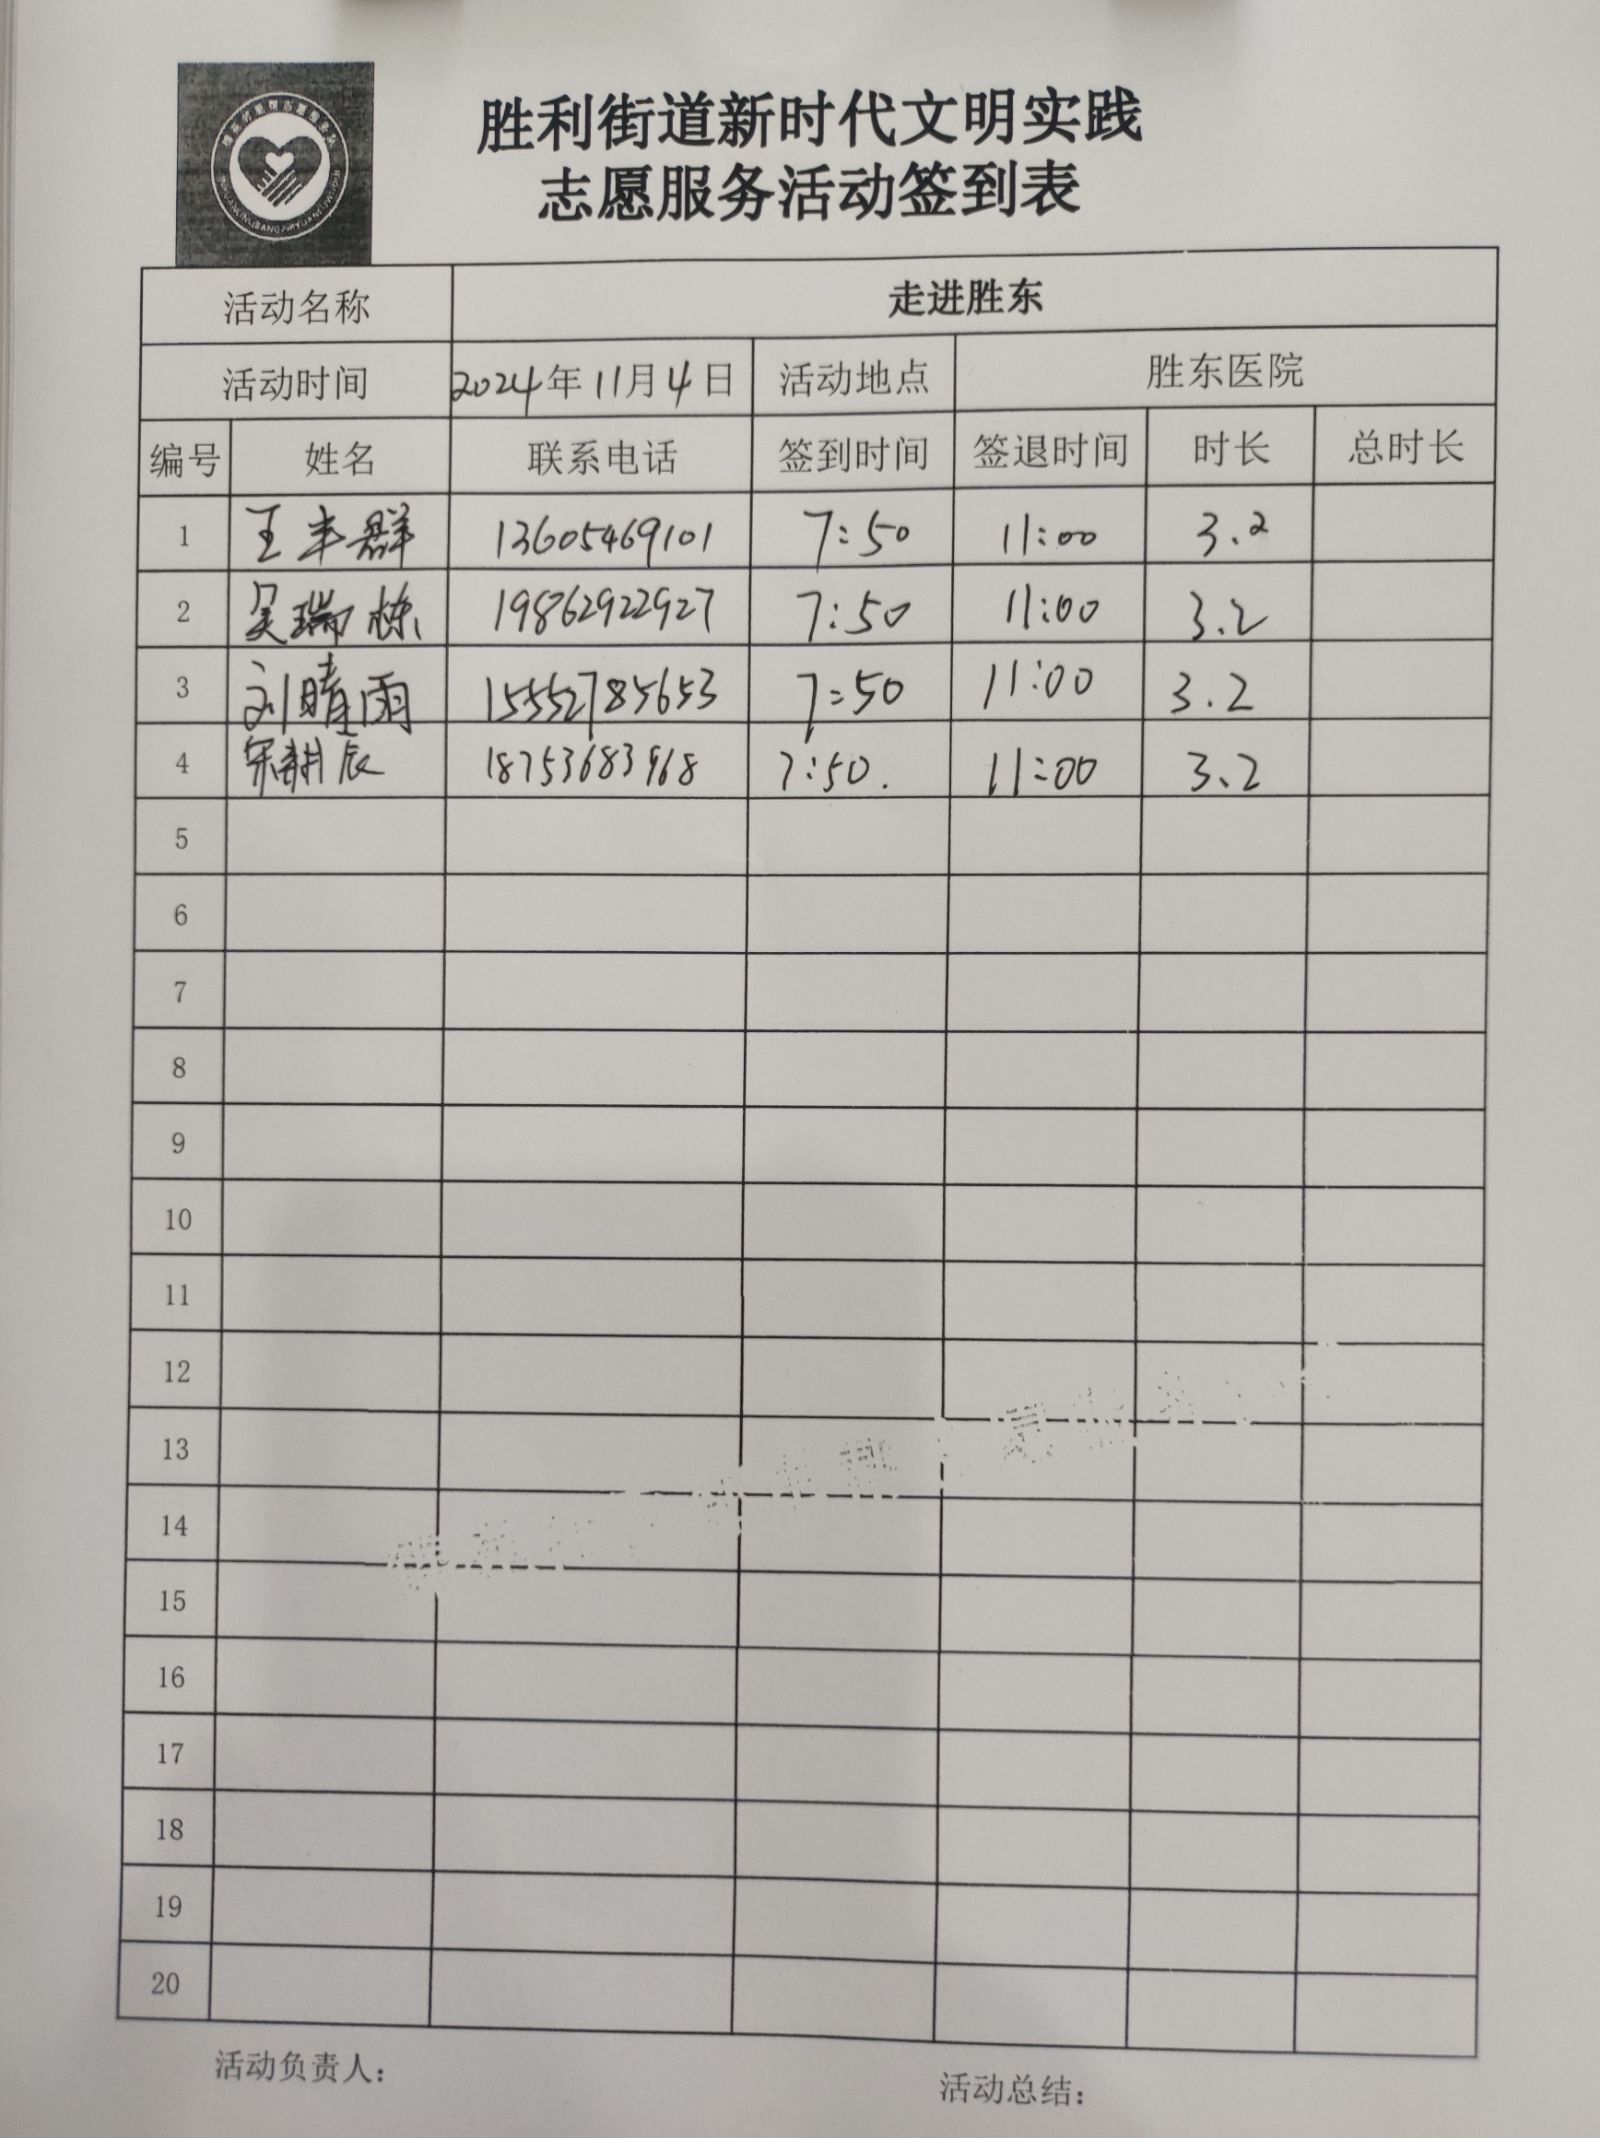 胜利街道新时代文明实践
志愿服务活动签到表
活动名称 走进胜东
活动时间 2024年11月4日 活动地点 胜东医院
编号 姓名 联系电话 签到时间 签退时间 时长 总时长
1 王丰群 13605469101 7:50 11:00 3.2
2 吴瑞栋 19862922927 7:50 11:00 3.2
3 刘晴雨 15552785653 7:50 11:00 3.2
4 宋辰 18753683968 7:50. 11:00 3.2
5
6
7
8
9
10
11
12
13
14
15
16
17
18
19
20
活动负责人: 活动总结: